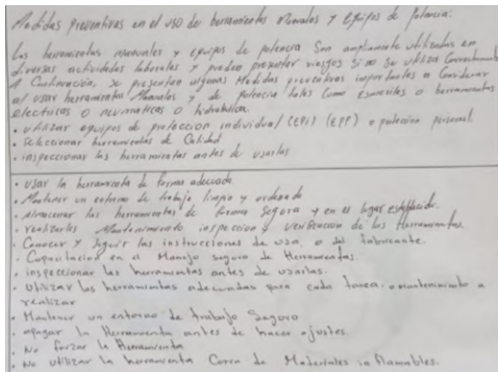 Medidas preventivas en el uso de herramientas Manuales y Equipos de Potencia:
Las herramientas manuales y equipos de potencia Son ampliamente utilizados en
diversas actividades laborales y pueden presentar riesgos si no se utiliza Correctamente
A Continuación, se presentan algunas Medidas preventivas importantes a Considerar
al usar herramientas Manuales y de potencia tales Como esmeriles o herramientas
electricas o neumaticas o hidraulica.
• utilizar equipos de proteccion individual (EPI) (EPP) o personal.
• Seleccionar herramientas de Calidad
• inspeccionar las herramientas antes de usarlas
• Usar la herramienta de forma adecuada.
• Mantener un entorno de trabajo limpio y ordenado
• Almacenar las herramientas de forma Segura y en el lugar establecido.
• realizarles Mantenimiento inspeccion y Verificacion de las Herramientas.
• Conocer y Seguir las instrucciones de uso, o del fabricante.
• Capacitacion en el Manejo seguro de Herramientas.
• inspeccionar las herramientas antes de usarlas.
• Utilizar las herramientas adecuadas para cada tarea. o mantenimiento a
realizar
• Mantener un entorno de trabajo Seguro
• apagar la Herramienta antes de hacer ajustes.
• No forzar la Herramienta
• No utilizar la herramienta Cerca de Materiales inflamables.